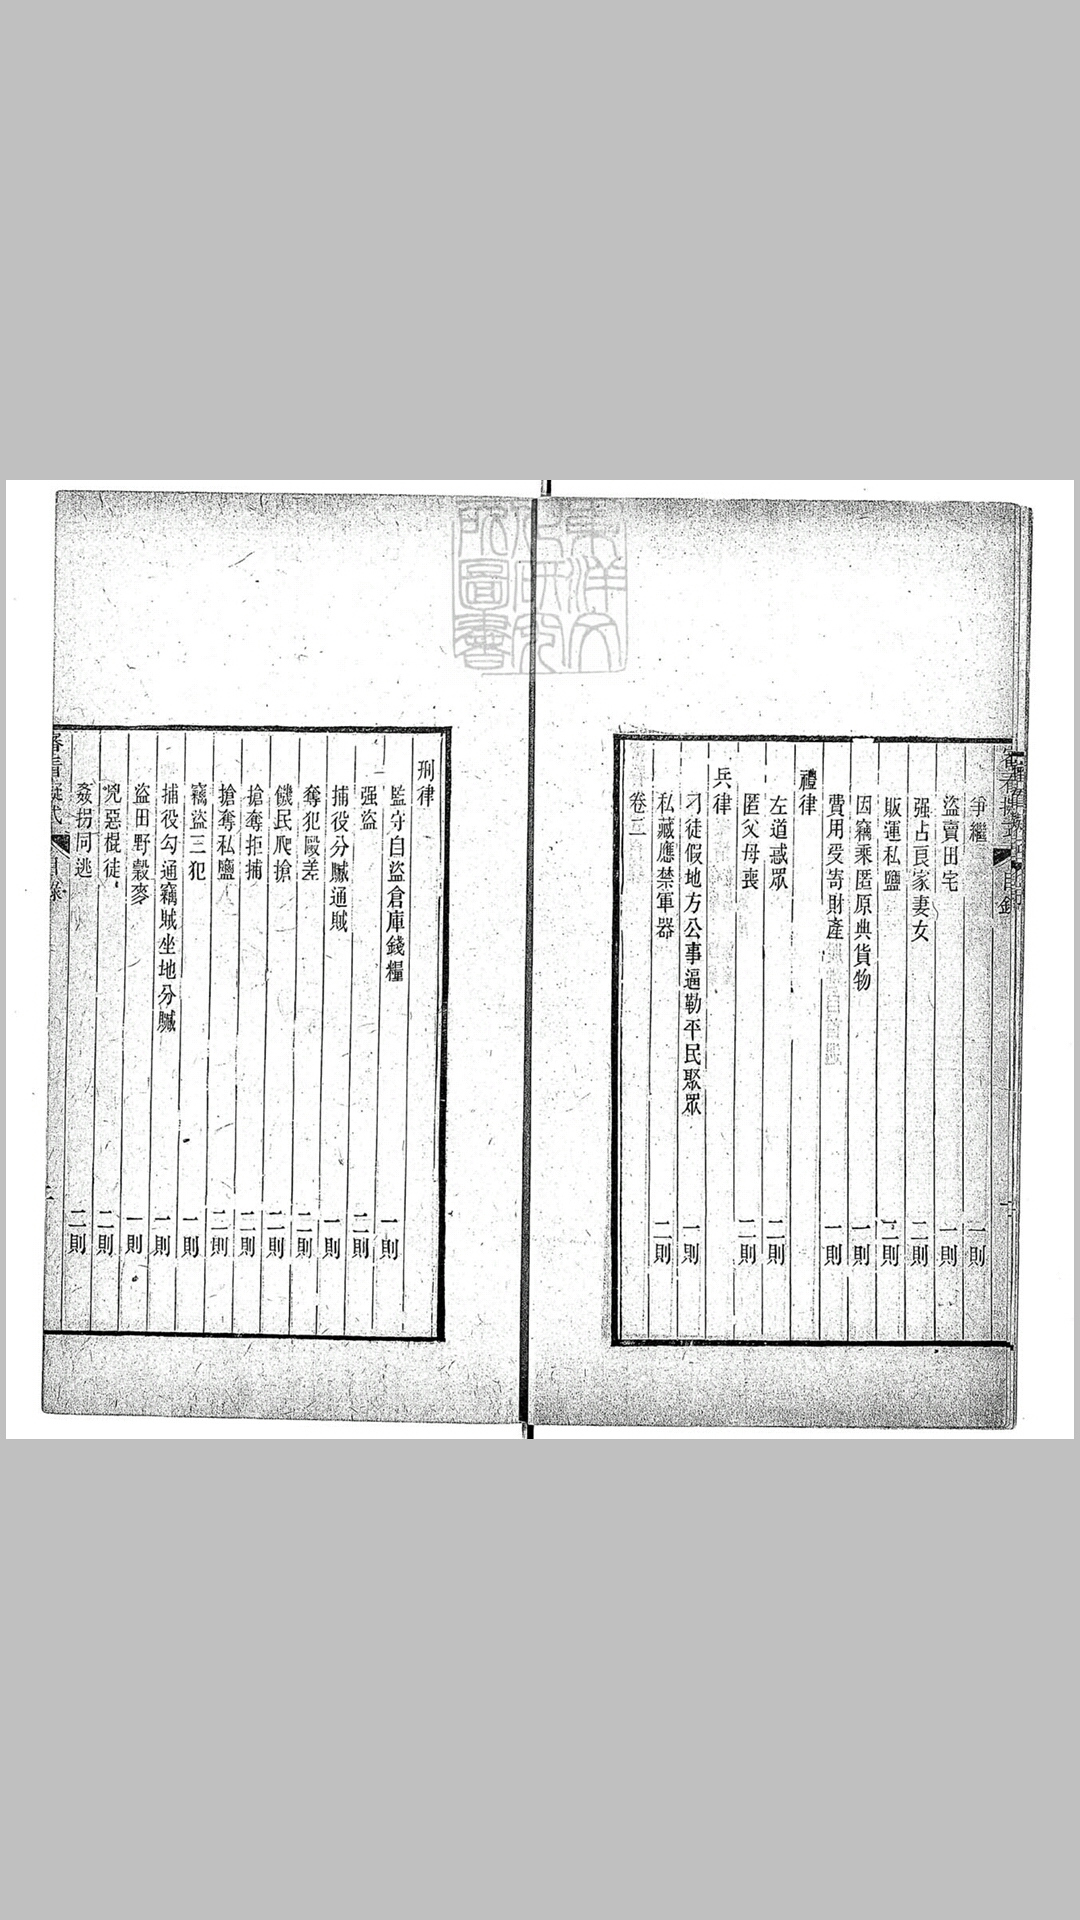 爭繼 一則
盜賣田宅 一則
强占良家妻女 二則
販運私鹽 二則
因竊乘匿原典貨物 一則
費用受寄財產 一則
禮律
左道惑眾 二則
匿父母喪 二則
兵律
刁徒假地方公事逼勒平民聚眾 一則
私藏應禁軍器 二則
目錄
刑律
監守自盜倉庫錢糧 一則
强盜 二則
捕役分贓通賊 一則
奪犯毆差 二則
饑民爬搶 二則
搶奪拒捕 二則
搶奪私鹽 二則
竊盜三犯 一則
捕役勾通竊賊坐地分贓 一則
盜田野穀麥 一則
兇惡棍徒 二則
姦拐同逃 二則
目錄
東洋文化研究所圖書